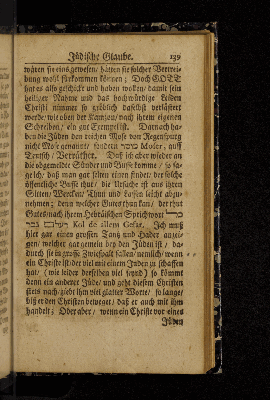 Jüdische Glaube. 139
wären sie eins gewesen / hätten sie solcher Vertrei-
bung wohl fürkommen können; Doch GOTT
hat es also geschickt und haben wollen / damit sein
heiliger Nahme und das hochwürdige Leiden
Christi nimmer so gröblich daselbst verlästert
werde, wie oben der Kamjon / nach ihrem eigenen
Schreiben / ein gut Exempel ist. Darnach ha-
ben die Jüden den reichen Mose von Regenspurg
nicht Mose genannt / sondern מוסר Moser, auff
Teutsch / Verräther. Daß ich aber wieder an
die obgemeldte Sünder und Busse komme / So sa-
ge ich, daß man gar selten einen findet, der solche
öffentliche Busse thut / die Ursache ist aus ihren
Sitten / Wercken / Thun und Lassen leicht abzu-
nehmen; denn welcher Gutes thun kan, der thut
Gutes / nach ihrem Hebräischen Sprichwort
Kol de allem Gefar. Ich muß
hier gar einen grossen Zanck und Hader anzei-
gen / welcher gar gemein bey den Jüden ist / da-
durch sie in grosse Zwiespalt fallen / nemlich / wenn
ein Christe ist / der viel mit einem Juden zu schaffen
hat / (wie leider derselben viel seynd) so kömmt
denn ein anderer Jüde / und geht diesem Christen
stets nach / giebt ihm viel glatter Worte / so lange /
biß er den Christen beweget / daß er auch mit ihm
handelt; Oder aber / wenn ein Christe vor eines
Jüden